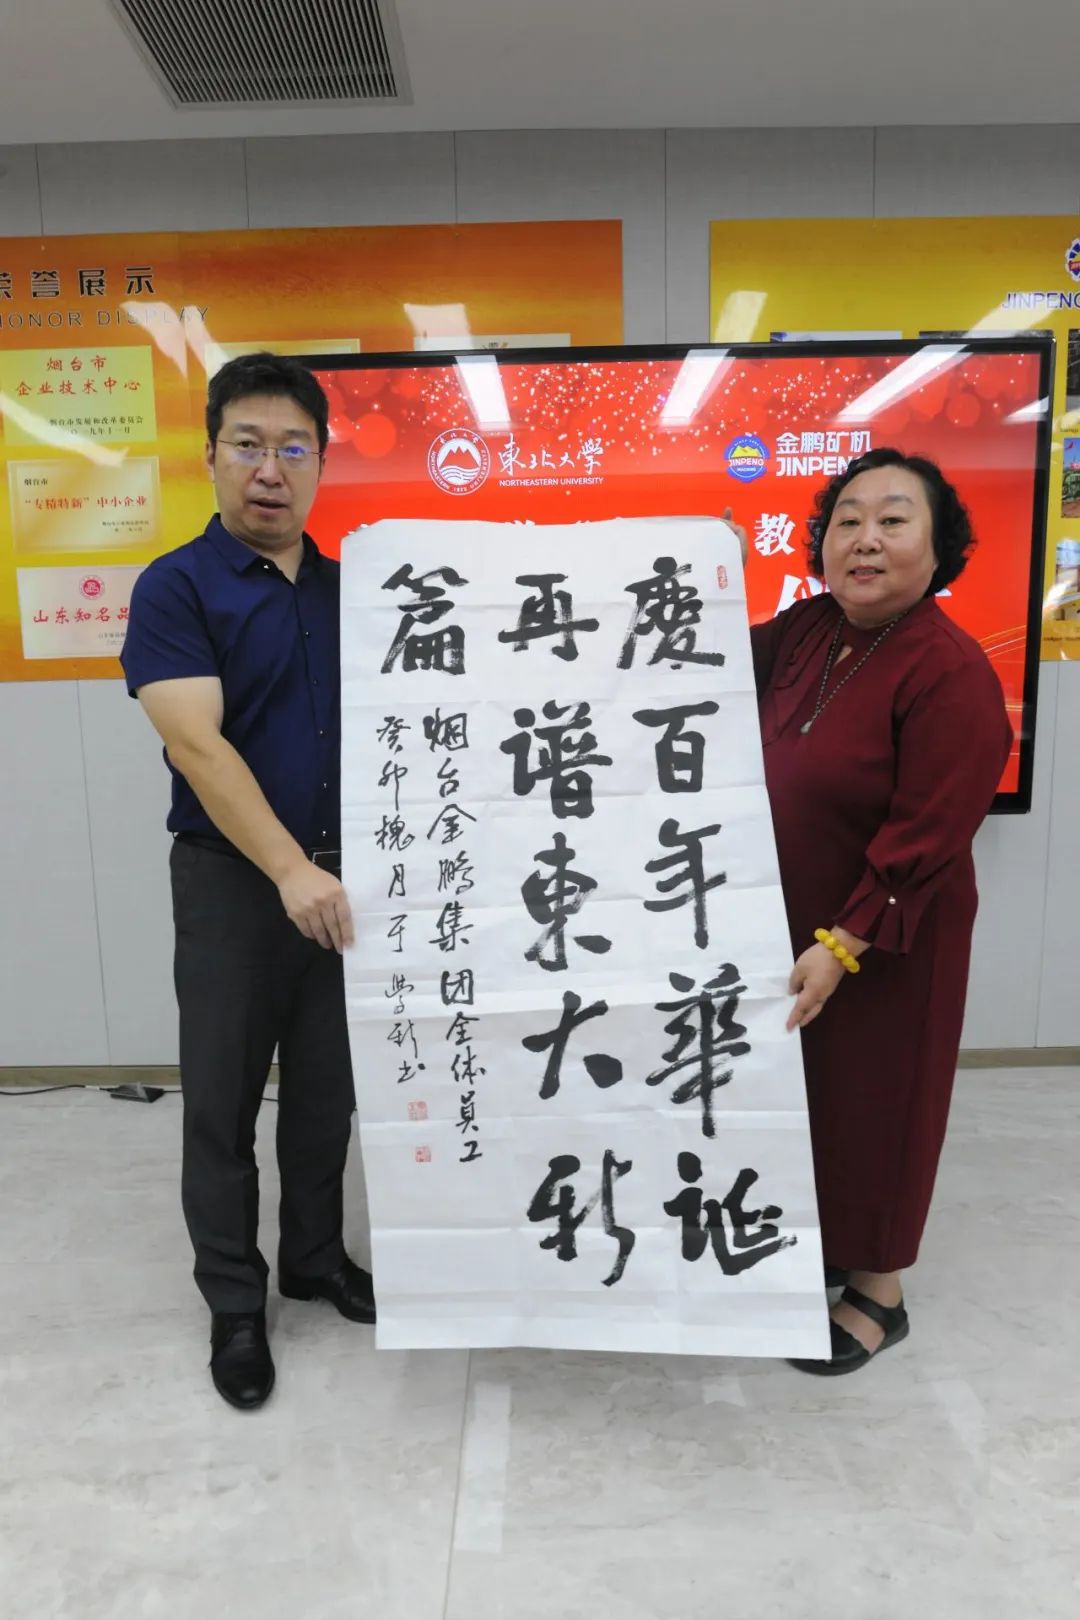 荣誉展示
HONOR DISPLAY
烟台市
企业技术中心
烟台市发展和改革委员会
二〇一九年十一月
烟台市
“专精特新”中小企业
山东知名品
東北大學
NORTHEASTERN UNIVERSITY
金鹏矿机
JINPENG
JINPENG
教
JINPENG
慶百年華誕
再譜東大新
篇
烟台金鹏集团全体員工
癸卯槐月于學新书